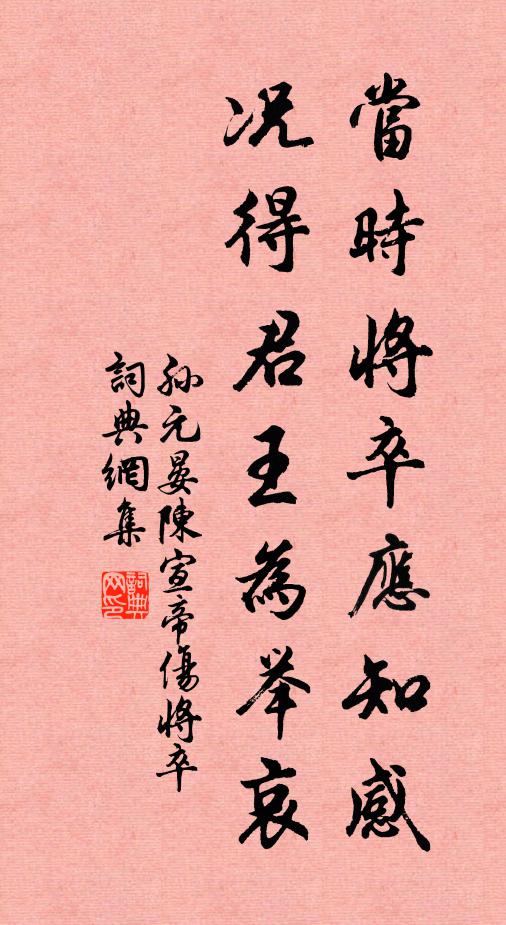 當時將卒應知感
况得君王為举哀
孫元晏陳宣帝傷將卒
詞典網集
詞典网印